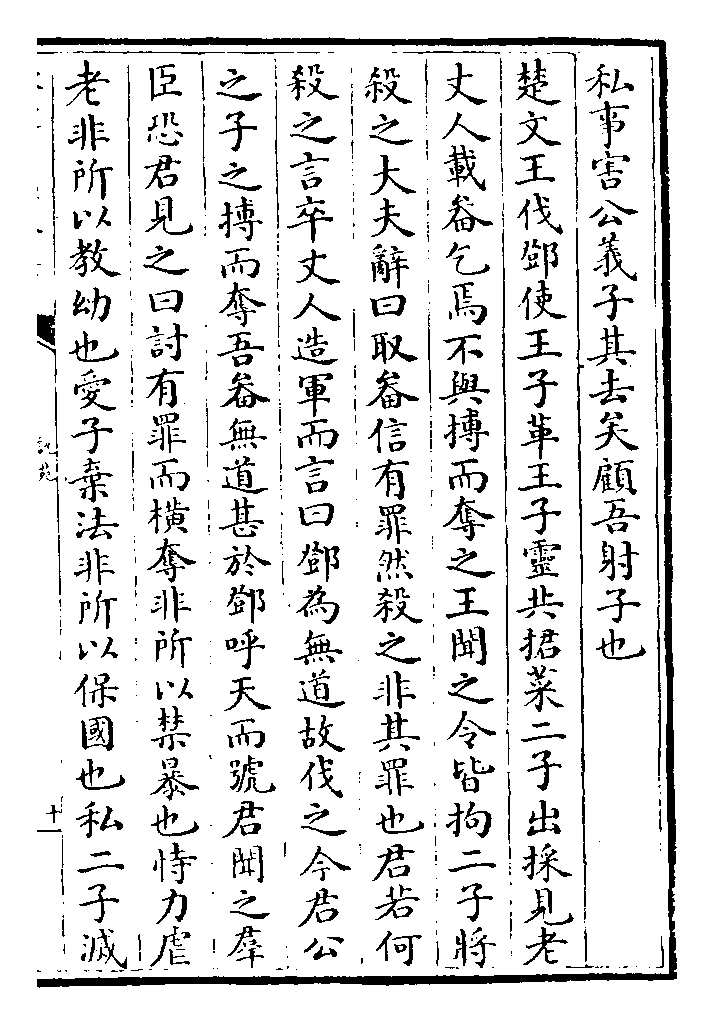 私事害公義子其去矣顧吾射子也
楚文王伐鄧使王子革王子靈共捃菜二子出採見老
丈人載畚乞焉不與摶而奪之王聞之令皆拘二子將
殺之大夫辭曰取畚信有罪然殺之非其罪也君若何
殺之言卒丈人造軍而言曰鄧為無道故伐之今君公
之子之摶而奪吾畚無道甚於鄧呼天而號君聞之羣
臣恐君見之曰討有罪而橫奪非所以禁暴也恃力虐
老非所以教幼也愛子棄法非所以保國也私二子滅
說苑
十一